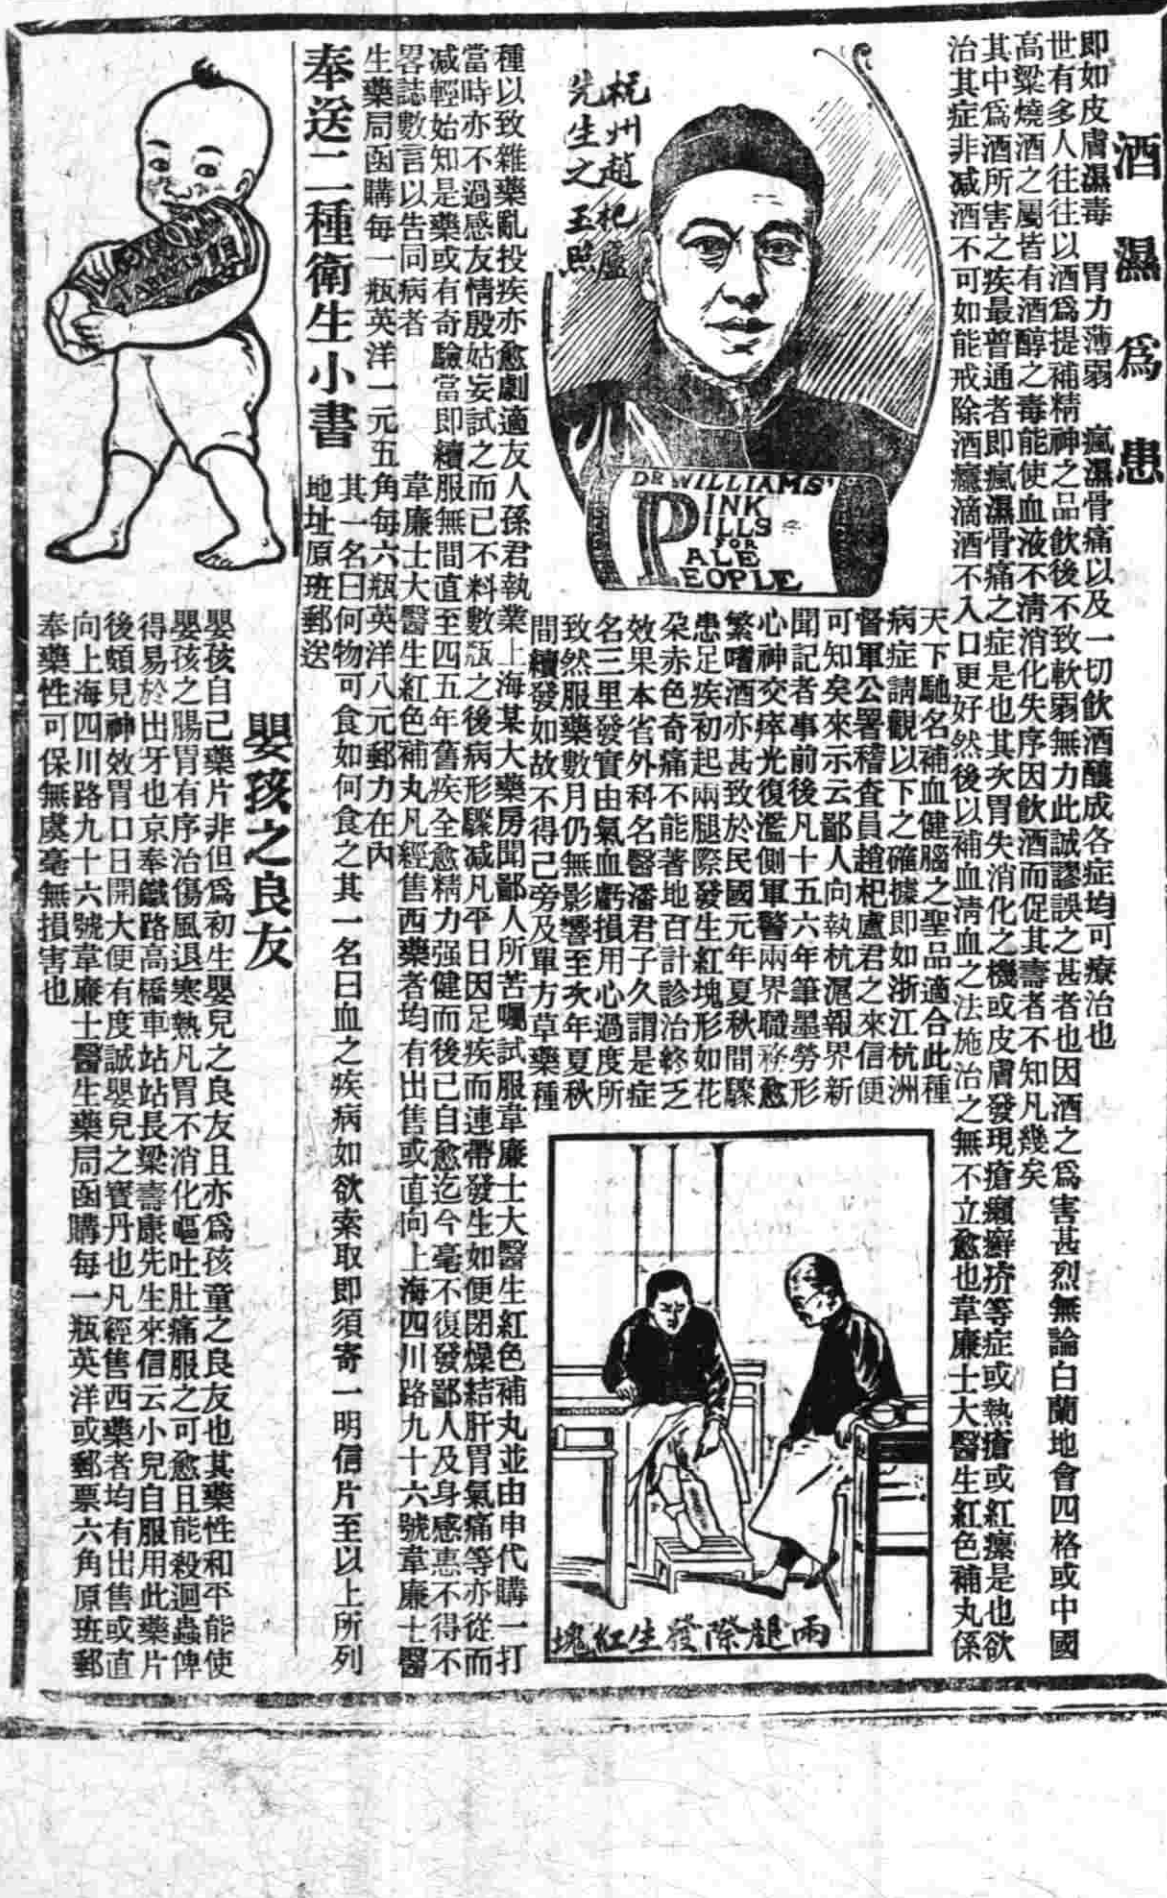 酒濕爲患
即如皮膚濕毒　胃力薄弱　瘋濕骨痛以及一切飲酒釀成各症均可療治也
世有多人往往以酒爲提補精神之品飲後不致軟弱無力此誠謬誤之甚者也因酒之爲害甚烈無論白蘭地會四格或中國
高粱燒酒之屬皆有酒醇之毒能使血液不清消化失序因飲酒而促其壽者不知凡幾矣
其中爲酒所害之疾最普通者即瘋濕骨痛之症是也其次胃失消化之機或皮膚發現瘡癩癬疥等症或熱瘡或紅瘰是也欲
治其症非减酒不可如能戒除酒癮滴酒不入口更好然後以補血清血之法施治之無不立愈也韋廉士大醫生紅色補丸係
天下馳名補血健腦之聖品適合此種
病症請觀以下之確據即如浙江杭洲
督軍公署稽查員趙杞盧君之來信便
可知矣來示云鄙人向執杭滬報界新
聞記者事前後凡十五六年筆墨勞形
心神交瘁光復濫側軍警兩界職務愈
繁嗜酒亦甚致於民國元年夏秋間驟
患足疾初起兩腿際發生紅塊形如花
朶赤色奇痛不能著地百計診治終乏
效果本省外科名醫潘君子久謂是症
名三里發實由氣血虧損用心過度所
致然服藥數月仍無影響至次年夏秋
間續發如故不得已旁及單方草藥種
種以致雜藥亂投疾亦愈劇適友人孫君執業上海某大藥房聞鄙人所苦囑試服韋廉士大醫生紅色補丸並由申代購一打
當時亦不過感友情殷姑妄試之而已不料數瓶之後病形驟减凡平日因足疾而連帶發生如便閉燥結肝胃氣痛等亦從而
减輕始知是藥或有奇驗當即續服無間直至四五年舊疾全愈精力强健而後已自愈迄今毫不復發鄙人及身感惠不得不
畧誌數言以告同病者　韋廉士大醫生紅色補丸凡經售西藥者均有出售或直向上海四川路九十六號韋廉士醫
生藥局函購每一瓶英洋一元五角每六瓶英洋八元郵力在內
杭州趙杞盧
先生之玉照
DR WILLIAMS'
PINK
PILLS
FOR
PALE
PEOPLE
兩腿際發生紅塊
奉送二種衛生小書
其一名曰何物可食如何食之其一名曰血之疾病如欲索取即須寄一明信片至以上所列
地址原班郵送
嬰孩之良友
嬰孩自己藥片非但爲初生嬰兒之良友且亦爲孩童之良友也其藥性和平能使
嬰孩之腸胃有序治傷風退寒熱凡胃不消化嘔吐肚痛服之可愈且能殺迴蟲俾
得易於出牙也京奉鐵路高橋車站站長梁壽康先生來信云小兒自服用此藥片
後頗見神效胃口日開大便有度誠嬰兒之寶丹也凡經售西藥者均有出售或直
向上海四川路九十六號韋廉士醫生藥局函購每一瓶英洋或郵票六角原班郵
奉藥性可保無虞毫無損害也